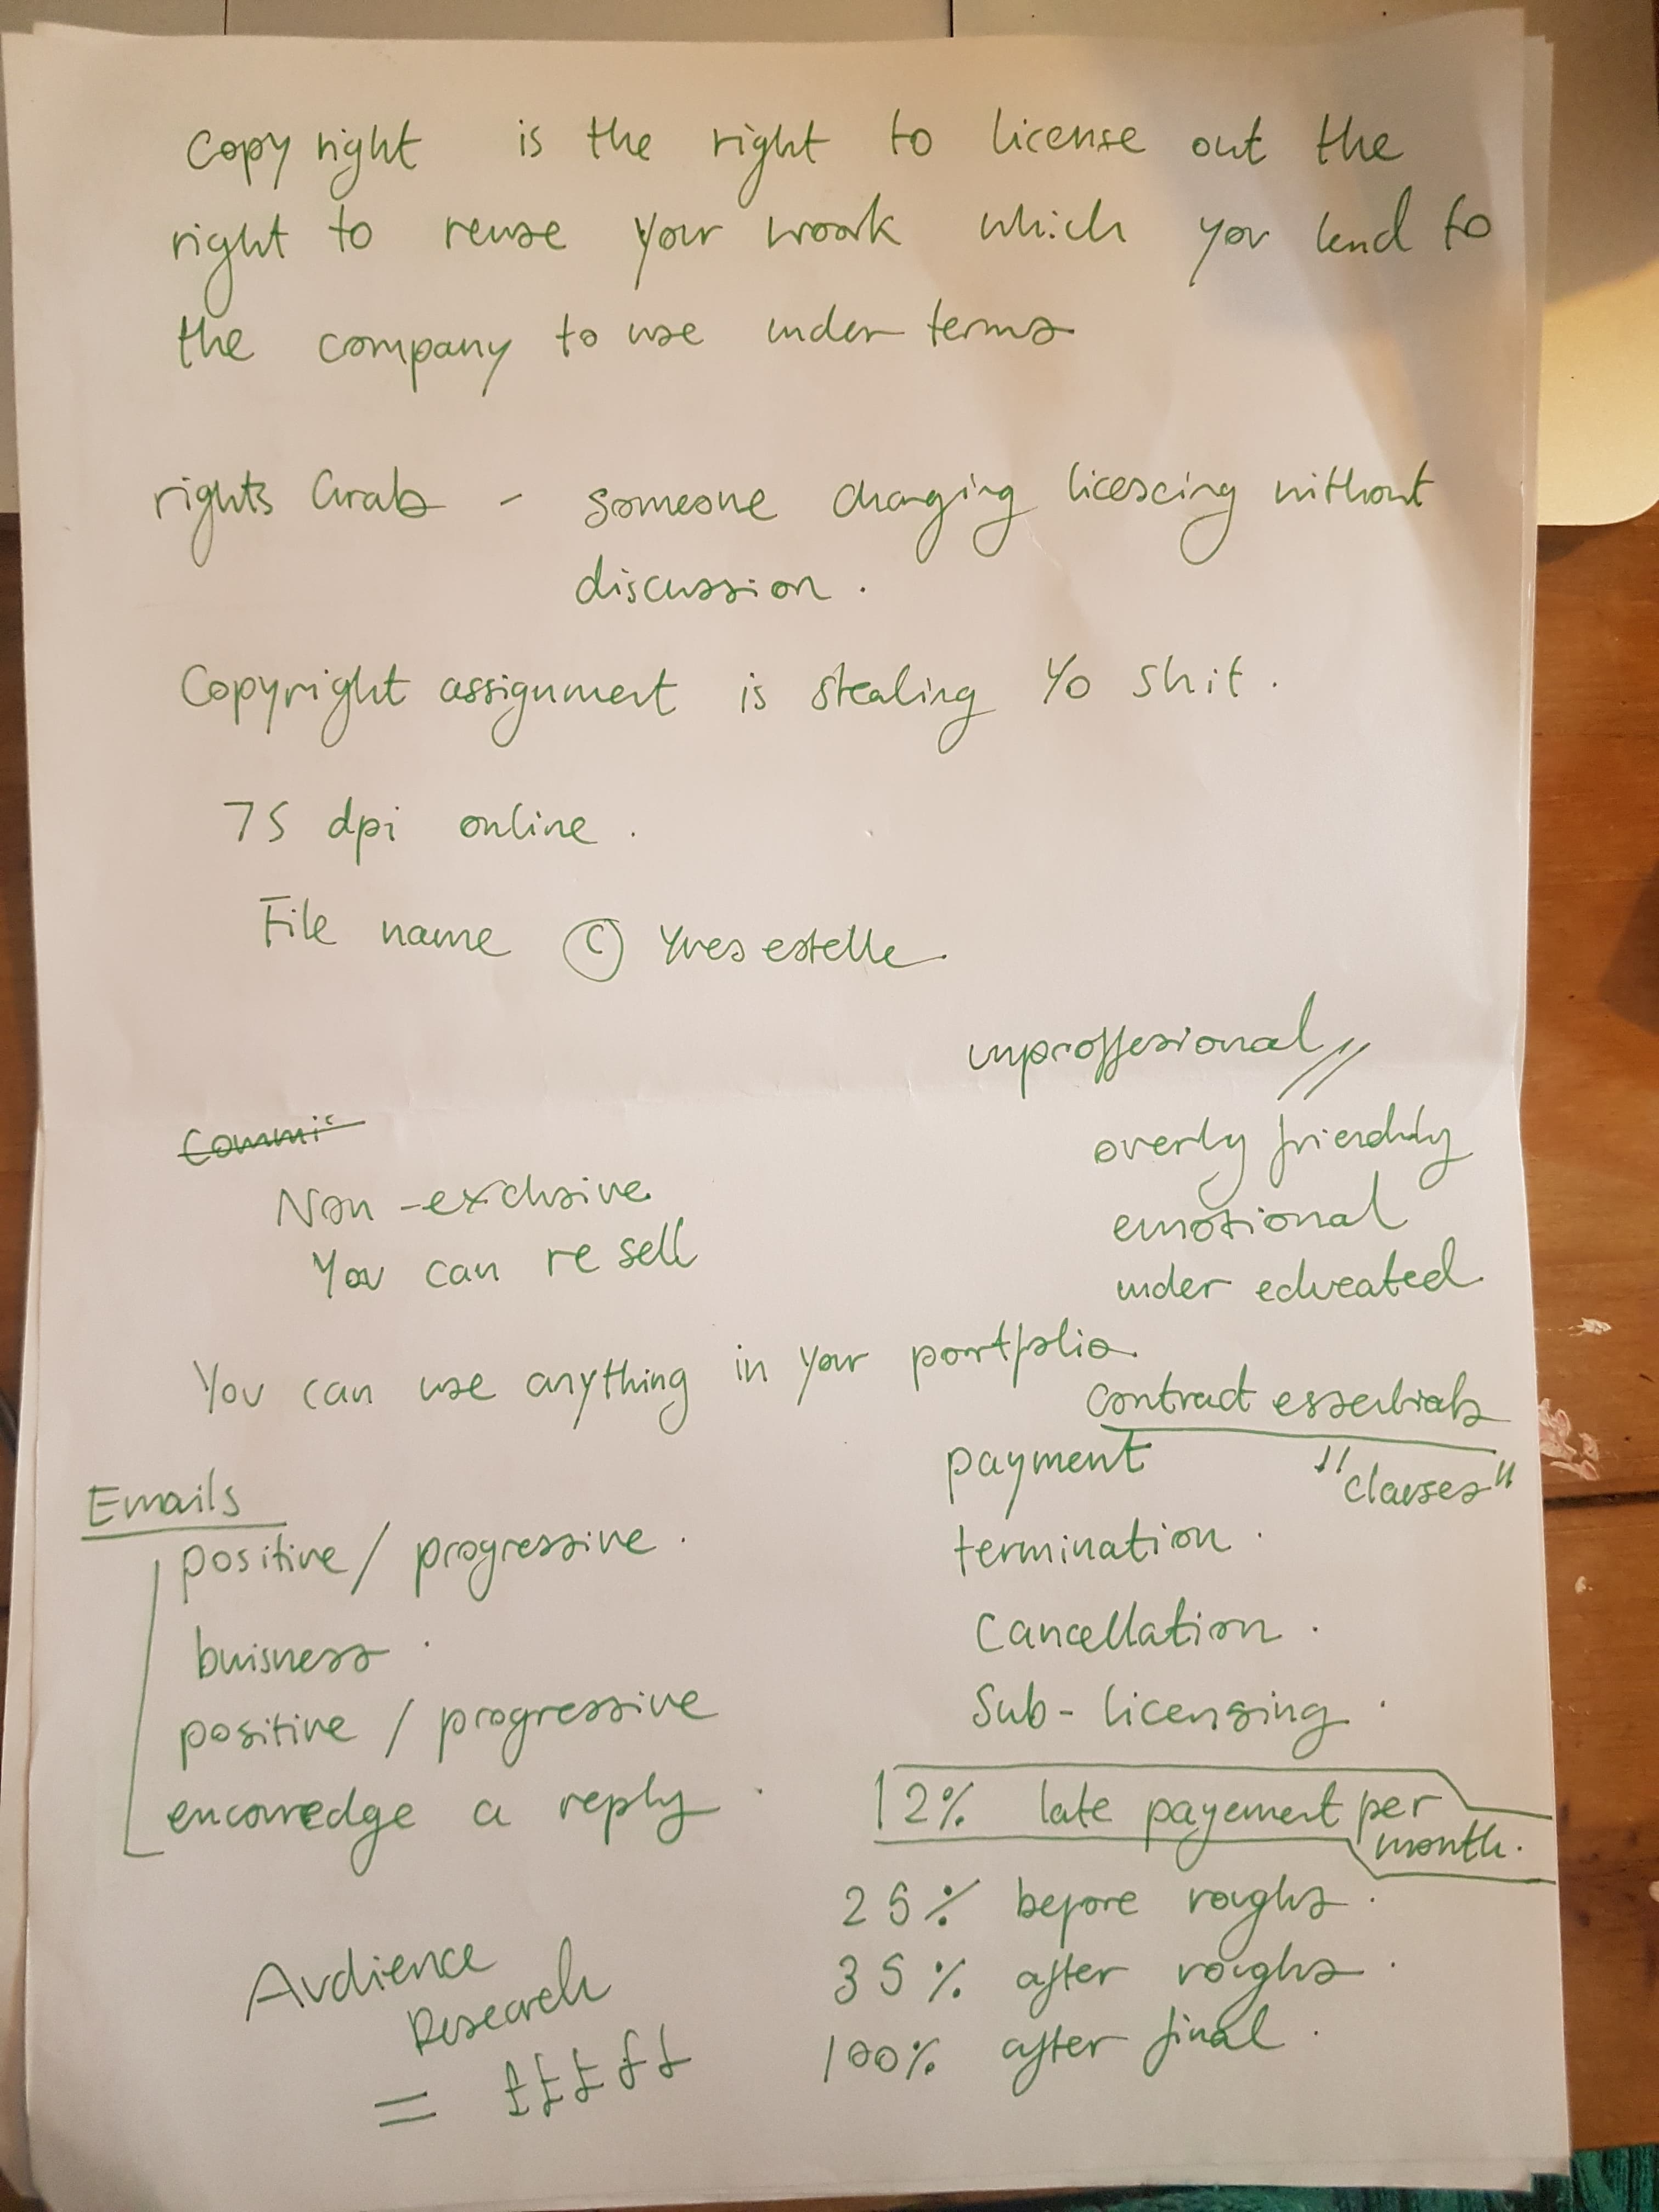 Copy right is the right to license out the
right to reuse your woork which you lend to
the company to use under terms
rights Grab - someone changing licescing without
discussion.
Copyright assignment is stealing Yo shit.
75 dpi online.
File name © Yves estelle.
unproffesional //
overly friendly
emotional
under educated.
Commi
Non-exclusive.
You can re sell
You can use anything in your portfolio.
contract essentials
"clauses"
payment
termination.
Cancellation.
Sub-licensing.
12% late payement per
month.
25% before roughs.
35% after roughs.
100% after final.
Emails
positive / progressive.
buisness.
positive / progressive
encouredge a reply.
Audience
Research
= £££££